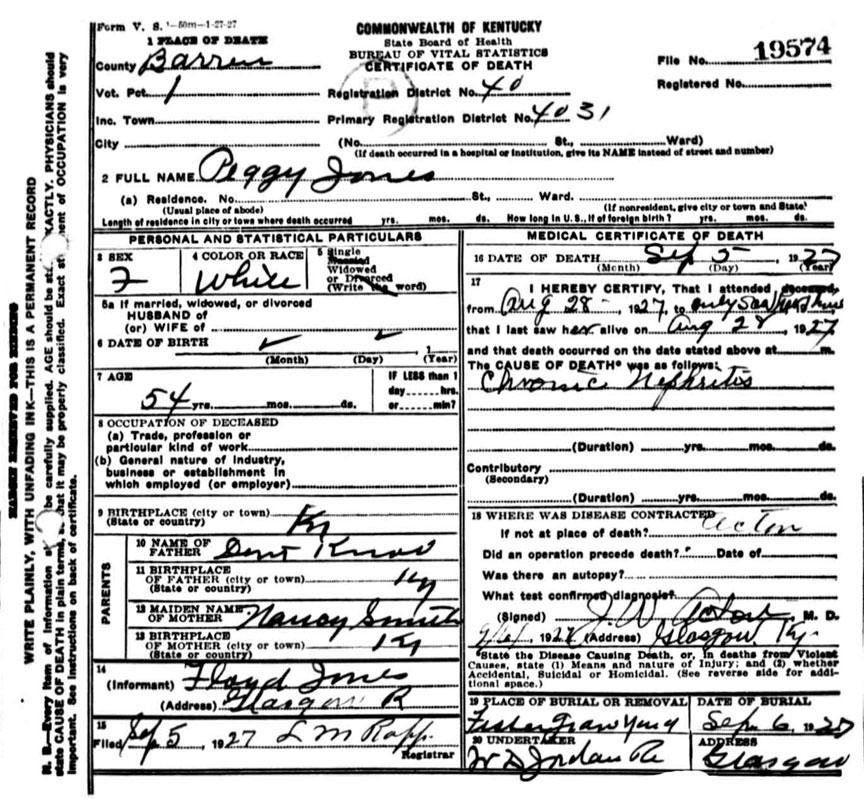 Form V. S. 1-50m-1-27-27
COMMONWEALTH OF KENTUCKY
State Board of Health
BUREAU OF VITAL STATISTICS
CERTIFICATE OF DEATH
File No. 19574
Registered No.
1 PLACE OF DEATH
County Barren
Vot. Pct. 1
Registration District No. 40
Inc. Town
Primary Registration District No. 4031
City (No. St., Ward)
(If death occurred in a hospital or institution, give its NAME instead of street and number)
2 FULL NAME Peggy Jones
(a) Residence. No. St., Ward.
(Usual place of abode) (If nonresident, give city or town and State)
Length of residence in city or town where death occurred yrs. mos. ds. How long in U. S., if of foreign birth? yrs. mos. ds.
PERSONAL AND STATISTICAL PARTICULARS
3 SEX
F
4 COLOR OR RACE
White
5 Single
Married
Widowed
or Divorced
(Write the word)
5a If married, widowed, or divorced
HUSBAND of
(or) WIFE of
6 DATE OF BIRTH
(Month) (Day) (Year)
7 AGE
54 yrs. mos. ds.
IF LESS than 1
day hrs.
or min?
8 OCCUPATION OF DECEASED
(a) Trade, profession or
particular kind of work
(b) General nature of industry,
business or establishment in
which employed (or employer)
9 BIRTHPLACE (city or town)
(State or country) Ky
PARENTS
10 NAME OF
FATHER Dent
11 BIRTHPLACE
OF FATHER (city or town)
(State or country) Ky
12 MAIDEN NAME
OF MOTHER Nancy Smith
13 BIRTHPLACE
OF MOTHER (city or town)
(State or country) Ky
14
(Informant) Floyd Jones
(Address) Glasgow R
15
Filed Sep 5, 1927 L M Rapp
Registrar
MEDICAL CERTIFICATE OF DEATH
16 DATE OF DEATH Sep 5 1927
(Month) (Day) (Year)
17
I HEREBY CERTIFY, That I attended deceased
from Aug 28 - 1927, to only saw
that I last saw her alive on Aug 28, 1927
and that death occurred on the date stated above at m.
The CAUSE OF DEATH* was as follows:
Chronic Nephritis
(Duration) yrs. mos. ds.
Contributory
(Secondary)
(Duration) yrs. mos. ds.
18 WHERE WAS DISEASE CONTRACTED
If not at place of death?
Did an operation precede death? Date of
Was there an autopsy?
What test confirmed diagnosis?
(Signed) J. W. Acton M. D.
192 (Address) Glasgow Ky.
*State the Disease Causing Death, or, in deaths from Violent
Causes, state (1) Means and nature of Injury; and (2) whether
Accidental, Suicidal or Homicidal. (See reverse side for addi-
tional space.)
19 PLACE OF BURIAL OR REMOVAL
Fisher Grave Yard
DATE OF BURIAL
Sep. 6 1927
20 UNDERTAKER
W D Jordan
ADDRESS
Glasgow
MARGIN RESERVED FOR BINDING
WRITE PLAINLY, WITH UNFADING INK—THIS IS A PERMANENT RECORD
N. B.—Every item of information should be carefully supplied. AGE should be stated EXACTLY. PHYSICIANS should
state CAUSE OF DEATH in plain terms, so that it may be properly classified. Exact statement of OCCUPATION is very
important. See instructions on back of certificate.